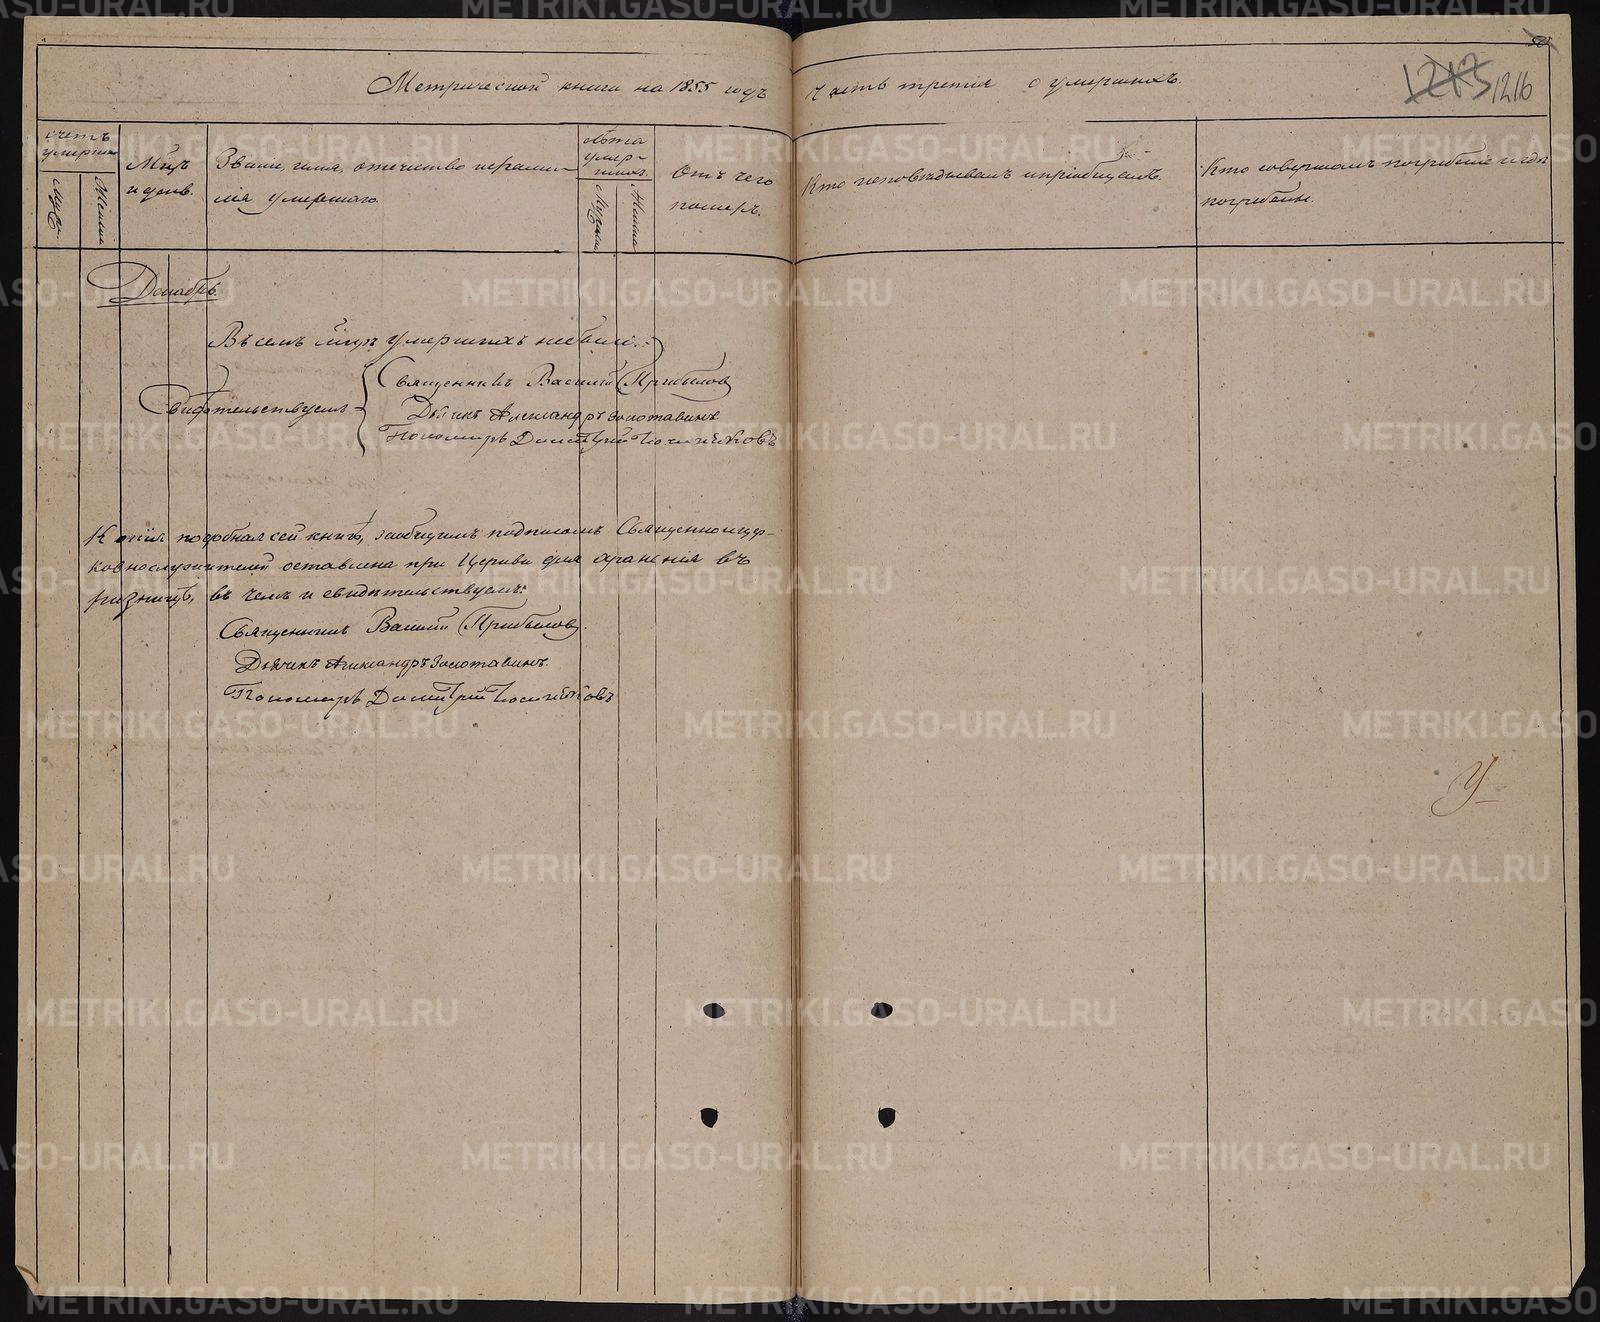 Метрической книги на 1855 годъ часть третія о умершихъ.
1216
счетъ умершихъ
Муж.
Женск.
Мѣц. и день.
Званіе, имя, отечество и фамилія умершаго.
Лѣта умершихъ.
Мужска
Женска
Отъ чего померъ.
Кто исповѣдывалъ и пріобщалъ.
Кто совершалъ погребеніе и гдѣ погребены.
Декабрь.
Въ семъ мцѣ умершихъ небыло.
Свидѣтельствуемъ
Священникъ Василій Прибылов
Дьячикъ Александръ Золотавинъ
Пономарь Димитрій
Копія подобная сей книгѣ, за общимъ подписомъ Священноцер-
ковнослужителей оставлена при Церкви для храненія въ
ризницѣ, въ чемъ и свидѣтельствуемъ:
Священникъ Василий Прибылов.
Дьячикъ Александръ Золотавинъ.
Пономарь Димитрій
METRIKI.GASO-URAL.RU